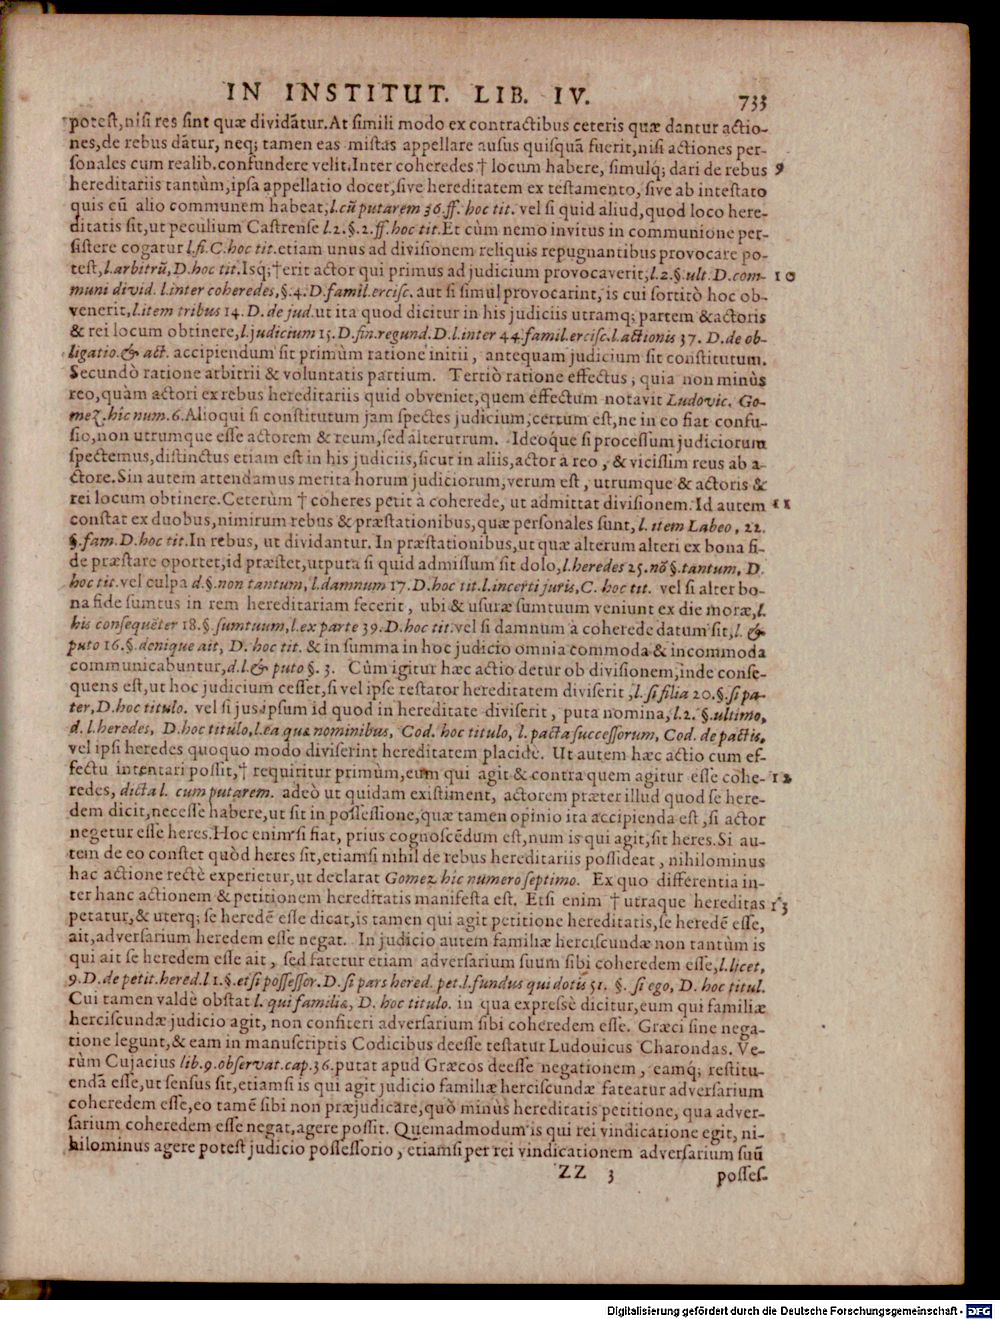 IN INSTITUT. LIB. IV. 733
potest,nisi res sint quæ dividãtur.At simili modo ex contractibus ceteris quæ dantur actio-
nes,de rebus dãtur, neq; tamen eas mistas appellare ausus quisquã fuerit,nisi actiones per-
sonales cum realib.confundere velit.Inter coheredes † locum habere, simulq; dari de rebus 9
hereditariis tantùm,ipsa appellatio docet,sive hereditatem ex testamento, sive ab intestato
quis cũ alio communem habeat,l.cũ putarem 36.ff. hoc tit. vel si quid aliud,quod loco here-
ditatis sit,ut peculium Castrense l.2.§.2.ff.hoc tit.Et cùm nemo invitus in communione per-
sistere cogatur l.fi.C.hoc tit.etiam unus ad divisionem reliquis repugnantibus provocare po-
test,l.arbitrũ,D.hoc tit.Isq;†erit actor qui primus ad judicium provocaverit,l.2.§.ult.D.com- 10
muni divid. l.inter coheredes,§.4.D.famil.ercisc. aut si simul provocarint, is cui sortitò hoc ob-
venerit,l.item tribus 14. D. de jud.ut ita quod dicitur in his judiciis utramq; partem & actoris
& rei locum obtinere,l.judicium 15.D.fin.regund.D.l.inter 44.famil.ercisc.l.actionis 37. D. de ob-
ligatio.& act. accipiendum sit primùm ratione initii, antequam judicium sit constitutum.
Secundò ratione arbitrii & voluntatis partium. Tertiò ratione effectus, quia non minùs
reo,quàm actori ex rebus hereditariis quid obveniet,quem effectum notavit Ludovic. Go-
mez.hic num.6.Alioqui si constitutum jam spectes judicium,certum est,ne in eo fiat confu-
sio,non utrumque esse actorem & reum,sed alterutrum. Ideoque si processum judiciorum
spectemus,distinctus etiam est in his judiciis,sicut in aliis,actor à reo, & vicissim reus ab a-
ctore.Sin autem attendamus merita horum judiciorum,verum est, utrumque & actoris &
rei locum obtinere.Ceterùm † coheres petit à coherede, ut admittat divisionem.Id autem 11
constat ex duobus,nimirum rebus & præstationibus,quæ personales sunt, l. item Labeo, 22.
§.fam.D.hoc tit.In rebus, ut dividantur.In præstationibus,ut quæ alterum alteri ex bona fi-
de præstare oportet,id præstet,utputa si quid admissum sit dolo,l.heredes 25.nõ §.tantum, D.
hoc tit.vel culpa d.§.non tantum,l.damnum 17.D.hoc tit.l.incerti juris,C. hoc tit. vel si alter bo-
na fide sumtus in rem hereditariam fecerit, ubi & usuræ sumtuum veniunt ex die moræ,l.
his consequẽter 18.§.sumtuum,l.ex parte 39.D.hoc tit.vel si damnum à coherede datum sit,l. &
puto 16.§.denique ait, D. hoc tit. & in summa in hoc judicio omnia commoda & incommoda
communicabuntur,d.l.& puto §. 3. Cùm igitur hæc actio detur ob divisionem,inde conse-
quens est,ut hoc judicium cesset,si vel ipse testator hereditatem diviserit,l.si filia 20.§.si pa-
ter,D.hoc titulo. vel si jus ipsum id quod in hereditate diviserit, puta nomina,l.2. §.ultimo,
d. l.heredes, D.hoc titulo,l.ea quæ nominibus, Cod. hoc titulo, l.pacta successorum, Cod. de pactis,
vel ipsi heredes quoquo modo diviserint hereditatem placidè. Ut autem hæc actio cum ef-
fectu intentari possit,† requiritur primùm,eum qui agit & contra quem agitur esse cohe- 12
redes, dicta l. cum putarem. adeò ut quidam existiment, actorem præter illud quod se here-
dem dicit,necesse habere,ut sit in possessione,quæ tamen opinio ita accipienda est,si actor
negetur esse heres.Hoc enim si fiat, prius cognoscẽdum est,num is qui agit,sit heres.Si au-
tem de eo constet quòd heres sit,etiamsi nihil de rebus hereditariis possideat, nihilominus
hac actione rectè experietur,ut declarat Gomez hic numero septimo. Ex quo differentia in-
ter hanc actionem & petitionem hereditatis manifesta est. Etsi enim † utraque hereditas 13
petatur,& uterq; se heredẽ esse dicat,is tamen qui agit petitione hereditatis,se heredẽ esse,
ait,adversarium heredem esse negat. In judicio autem familiæ herciscundæ non tantùm is
qui ait se heredem esse ait, sed fatetur etiam adversarium suum sibi coheredem esse,l.licet,
9.D.de petit.hered.l 1.§.etsi possessor.D.si pars hered. pet.l.fundus qui dotis 51. §. si ego, D. hoc titul.
Cui tamen valdè obstat l. qui familiæ, D. hoc titulo. in qua expressè dicitur,eum qui familiæ
herciscundæ judicio agit, non confiteri adversarium sibi coheredem esse. Græci sine nega-
tione legunt,& eam in manuscriptis Codicibus deesse testatur Ludouicus Charondas. Ve-
rùm Cujacius lib.9.observat.cap.36.putat apud Græcos deesse negationem, eamq; restitu-
endã esse,ut sensus sit,etiamsi is qui agit judicio familiæ herciscundæ fateatur adversarium
coheredem esse,eo tamẽ sibi non præjudicare,quò minùs hereditatis petitione, qua adver-
sarium coheredem esse negat,agere possit. Quemadmodum is qui rei vindicatione egit, ni-
hilominus agere potest judicio possessorio, etiamsi per rei vindicationem adversarium suũ
ZZ 3 posses-
Digitalisierung gefördert durch die Deutsche Forschungsgemeinschaft - DFG